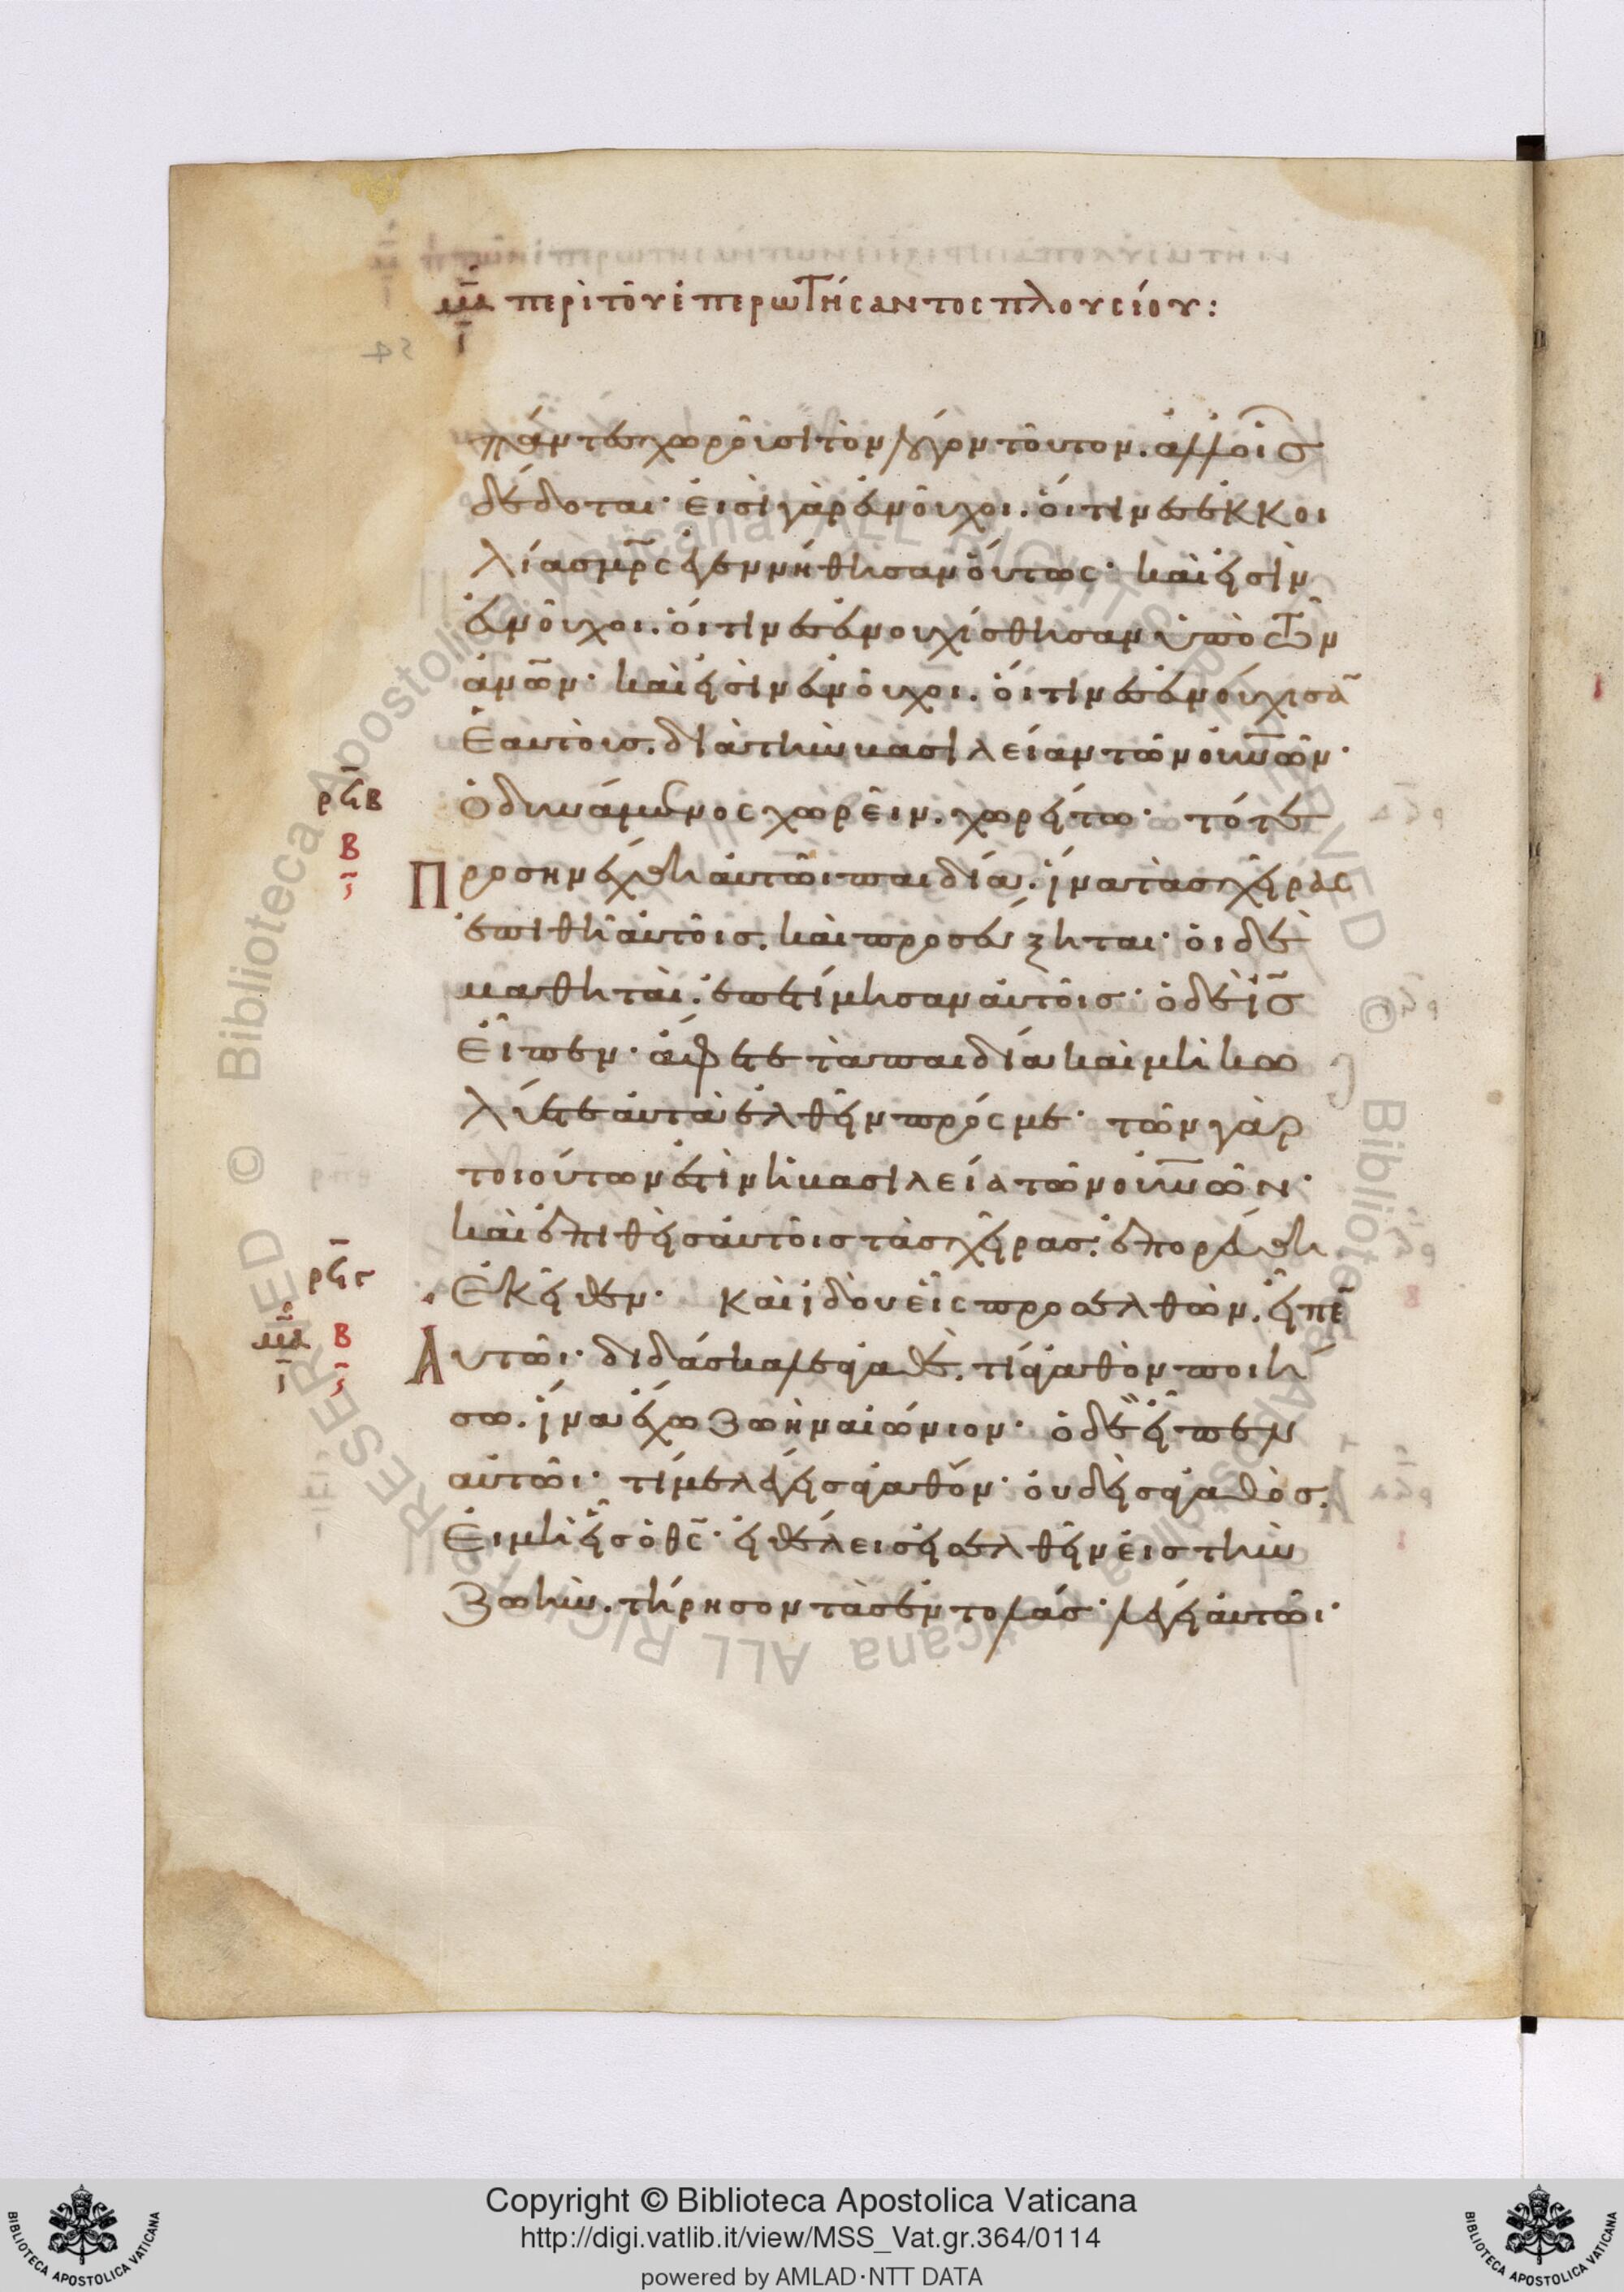 μα περὶ τοῦ ἐπερωτήσαντος πλουσίου:
πάντες χωροῦσι τὸν λόγον τοῦτον. ἀλλ οἷς
δέδοται· εἰσὶ γὰρ εὐνοῦχοι. οἵτινες ἐκ κοι
λίας μρ̅ς ἐγεννήθησαν οὕτως· καὶ εἰσὶν
εὐνοῦχοι. οἵτινες εὐνουχίσθησαν ὑπὸ τῶν
ἀν̅ω̅ν· καὶ εἰσὶν εὐνοῦχοι. οἵτινες εὐνούχισα̅
ἑαυτοὺς. διὰ τὴν βασιλείαν τῶν οὐν̅ῶν·
ὁ δυνάμενος χωρεῖν. χωρείτω· τότε
ρϟβ
β
ϛ
Προσηνέχθη αὐτῶι παιδία. ἵνα τὰς χεῖρας
ἐπιθῆ αὐτοῖς. καὶ προσεύξηται· οἱ δὲ
μαθηταὶ. ἐπετίμησαν αὐτοῖς· ὁ δὲ ι̅ς
εἶπεν· ἄφετε τὰ παιδία καὶ μὴ κω
λύετε αὐτὰ ἐλθεῖν πρός με· τῶν γὰρ
τοιούτων ἐστὶν ἡ βασιλεία τῶν οὐν̅ῶν·
καὶ ἐπιθεὶς αὐτοῖς τὰς χεῖρας. ἐπορεύθη
ρϟγ
ἐκεῖθεν· καὶ ἰδοὺ εἷς προσελθὼν. εἶπε̅
μα
ι
β
ϛ
Αὐτῶι· διδάσκαλε ἀγαθὲ. τί ἀγαθὸν ποιή
σω. ἵνα ἔχω ζωὴν αἰώνιον· ὁ δὲ εἶπεν
αὐτῶι· τί με λέγεις ἀγαθόν· οὐδεὶς ἀγαθὸς.
εἰ μὴ εἷς ὁ θ̅ς· εἰ θέλεις εἰσελθεῖν εἰς τὴν
ζωὴν. τήρησον τὰς ἐντολάς· λέγει αὐτῶι·
RESERVED © Biblioteca Apostolica Vaticana ALL RIGHTS RESERVED © Biblioteca Apostolica Vaticana ALL RIGHTS
Copyright © Biblioteca Apostolica Vaticana
http://digi.vatlib.it/view/MSS_Vat.gr.364/0114
powered by AMLAD·NTT DATA
BIBLIOTECA APOSTOLICA VATICANA
BIBLIOTECA APOSTOLICA VATICANA